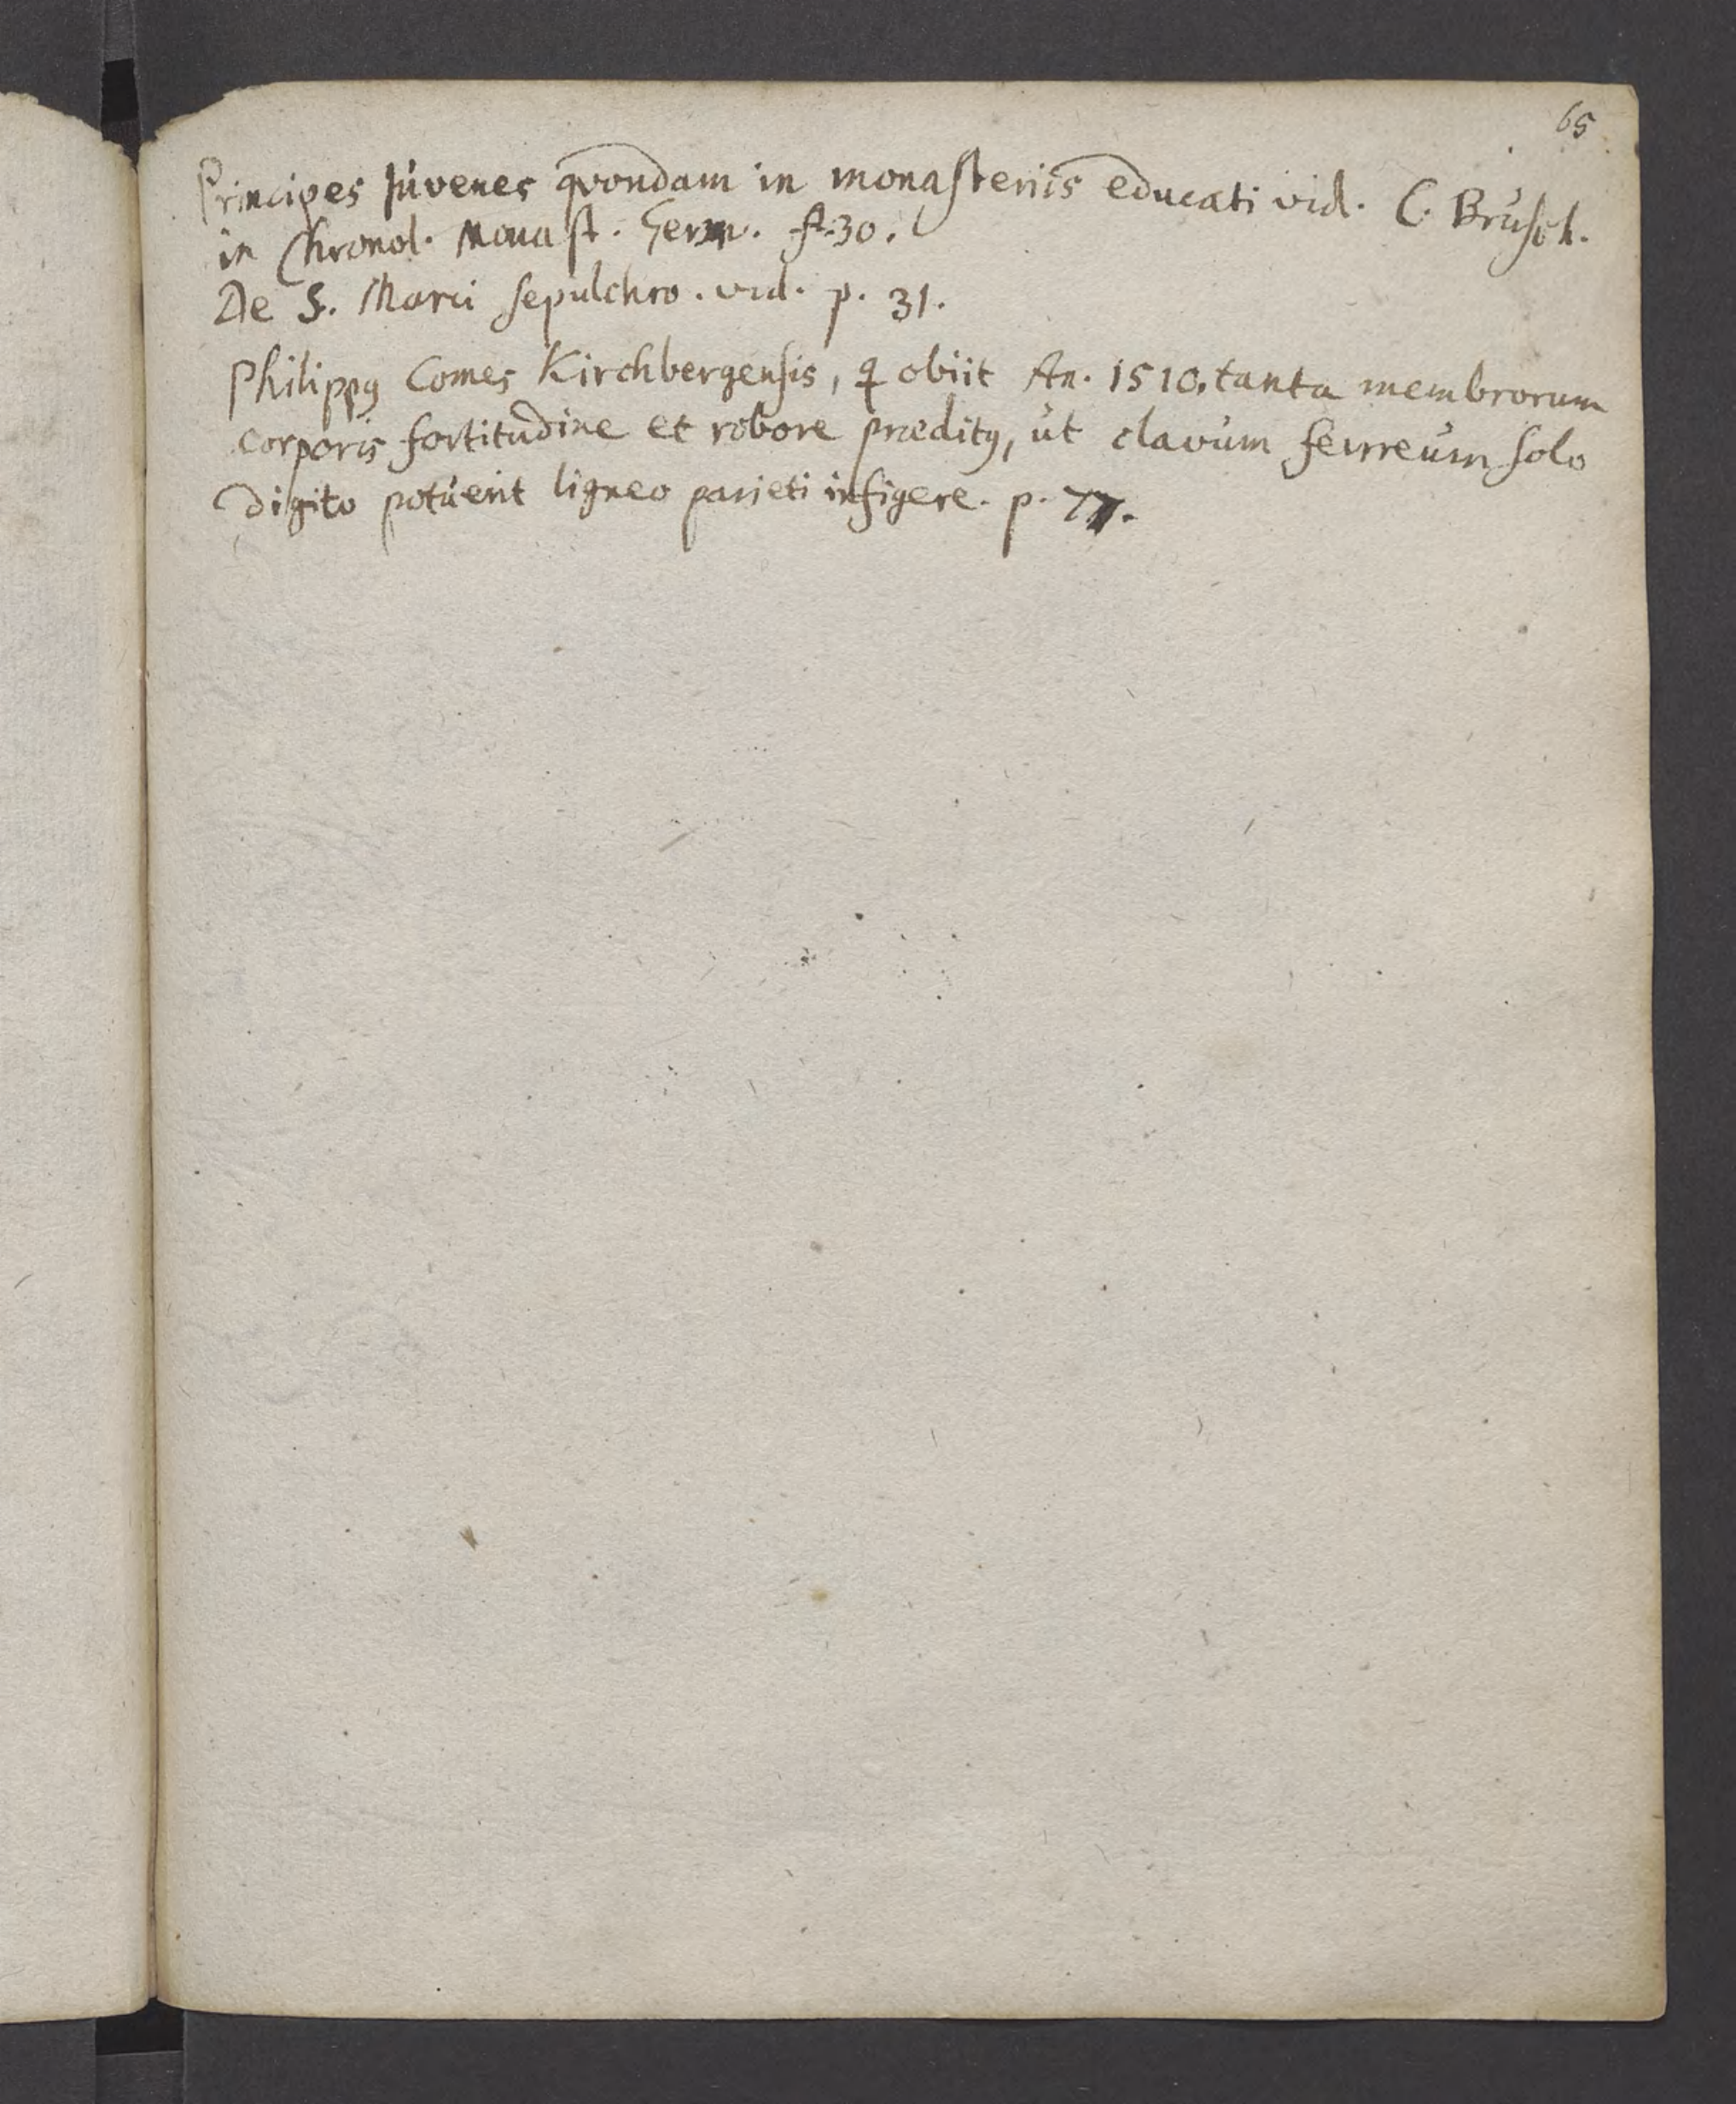 65
Principes Júvenes qvondam in monasteriis educati vid. C. Brúsch.
in Chronol. Monast. Germ. f. 30.
De S. Marci sepulchro. vid. p. 31.
Philippꝰ Comes Kirchbergensis, q obiit An. 1510. tanta membrorum
corporis fortitudine et robore præditꝰ, út clavúm ferreúm solo
digito potúerit ligneo parieti infigere. p. 77.